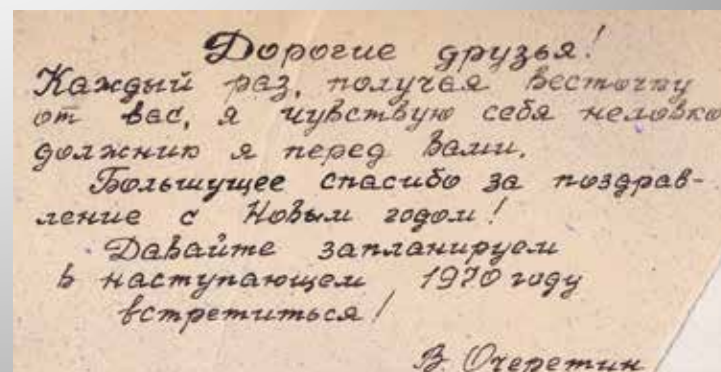 Дорогие друзья!
Каждый раз, получая весточку
от вас, я чувствую себя неловко
должник я перед вами.
Большущее спасибо за поздрав-
ление с Новым годом!
Давайте запланируем
в наступающем 1970 году
встретиться!
В. Очеретин